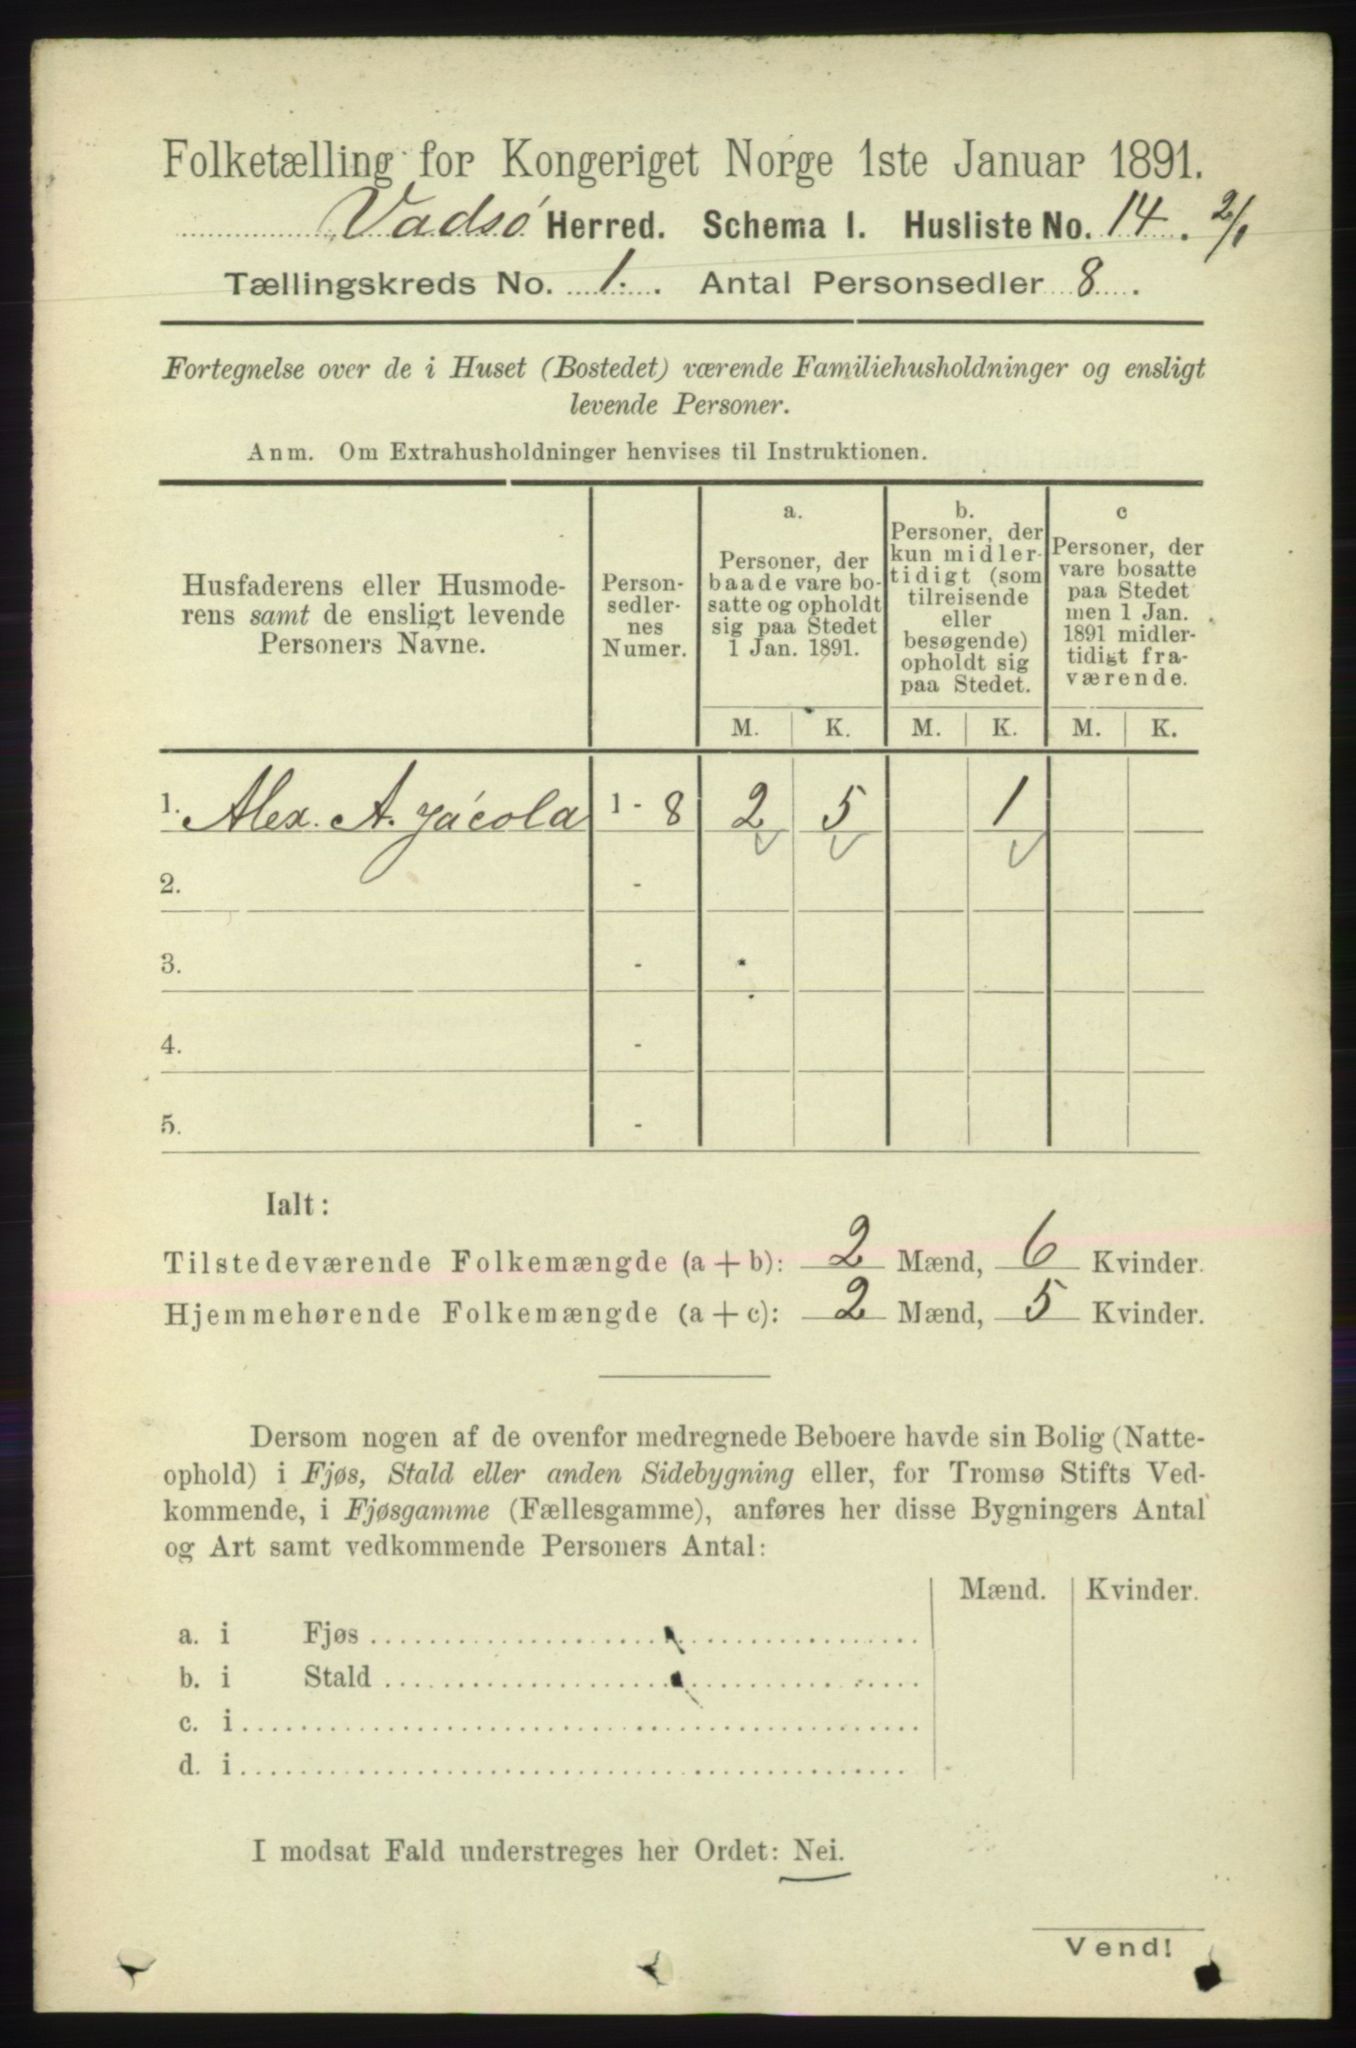 Folketælling for Kongeriget Norge 1ste Januar 1891.
Vadsø Herred. Schema I. Husliste No. 14. 2/1
Tællingskreds No. 1. Antal Personsedler 8.
Fortegnelse over de i Huset (Bostedet) værende Familiehusholdninger og ensligt
levende Personer.
Anm. Om Extrahusholdninger henvises til Instruktionen.
Husfaderens eller Husmode-
rens samt de ensligt levende
Personers Navne.
Person-
sedler-
nes
Numer.
a.
Personer, der
baade vare bo-
satte og opholdt
sig paa Stedet
1 Jan. 1891.
b.
Personer, der
kun midler-
tidigt (som
tilreisende
eller
besøgende)
opholdt sig
paa Stedet.
c
Personer, der
vare bosatte
paa Stedet
men 1 Jan.
1891 midler-
tidigt fra-
værende.
M. K. M. K. M. K.
1. Alex. A. Jácola 1 - 8 2 5 1
2. -
3. -
4. -
5. -
Ialt:
Tilstedeværende Folkemængde (a + b): 2 Mænd, 6 Kvinder.
Hjemmehørende Folkemængde (a + c): 2 Mænd, 5 Kvinder.
Dersom nogen af de ovenfor medregnede Beboere havde sin Bolig (Natte-
ophold) i Fjøs, Stald eller anden Sidebygning eller, for Tromsø Stifts Ved-
kommende, i Fjøsgamme (Fællesgamme), anføres her disse Bygningers Antal
og Art samt vedkommende Personers Antal:
Mænd. Kvinder.
a. i Fjøs
b. i Stald
c. i
d. i
I modsat Fald understreges her Ordet: Nei.
Vend!